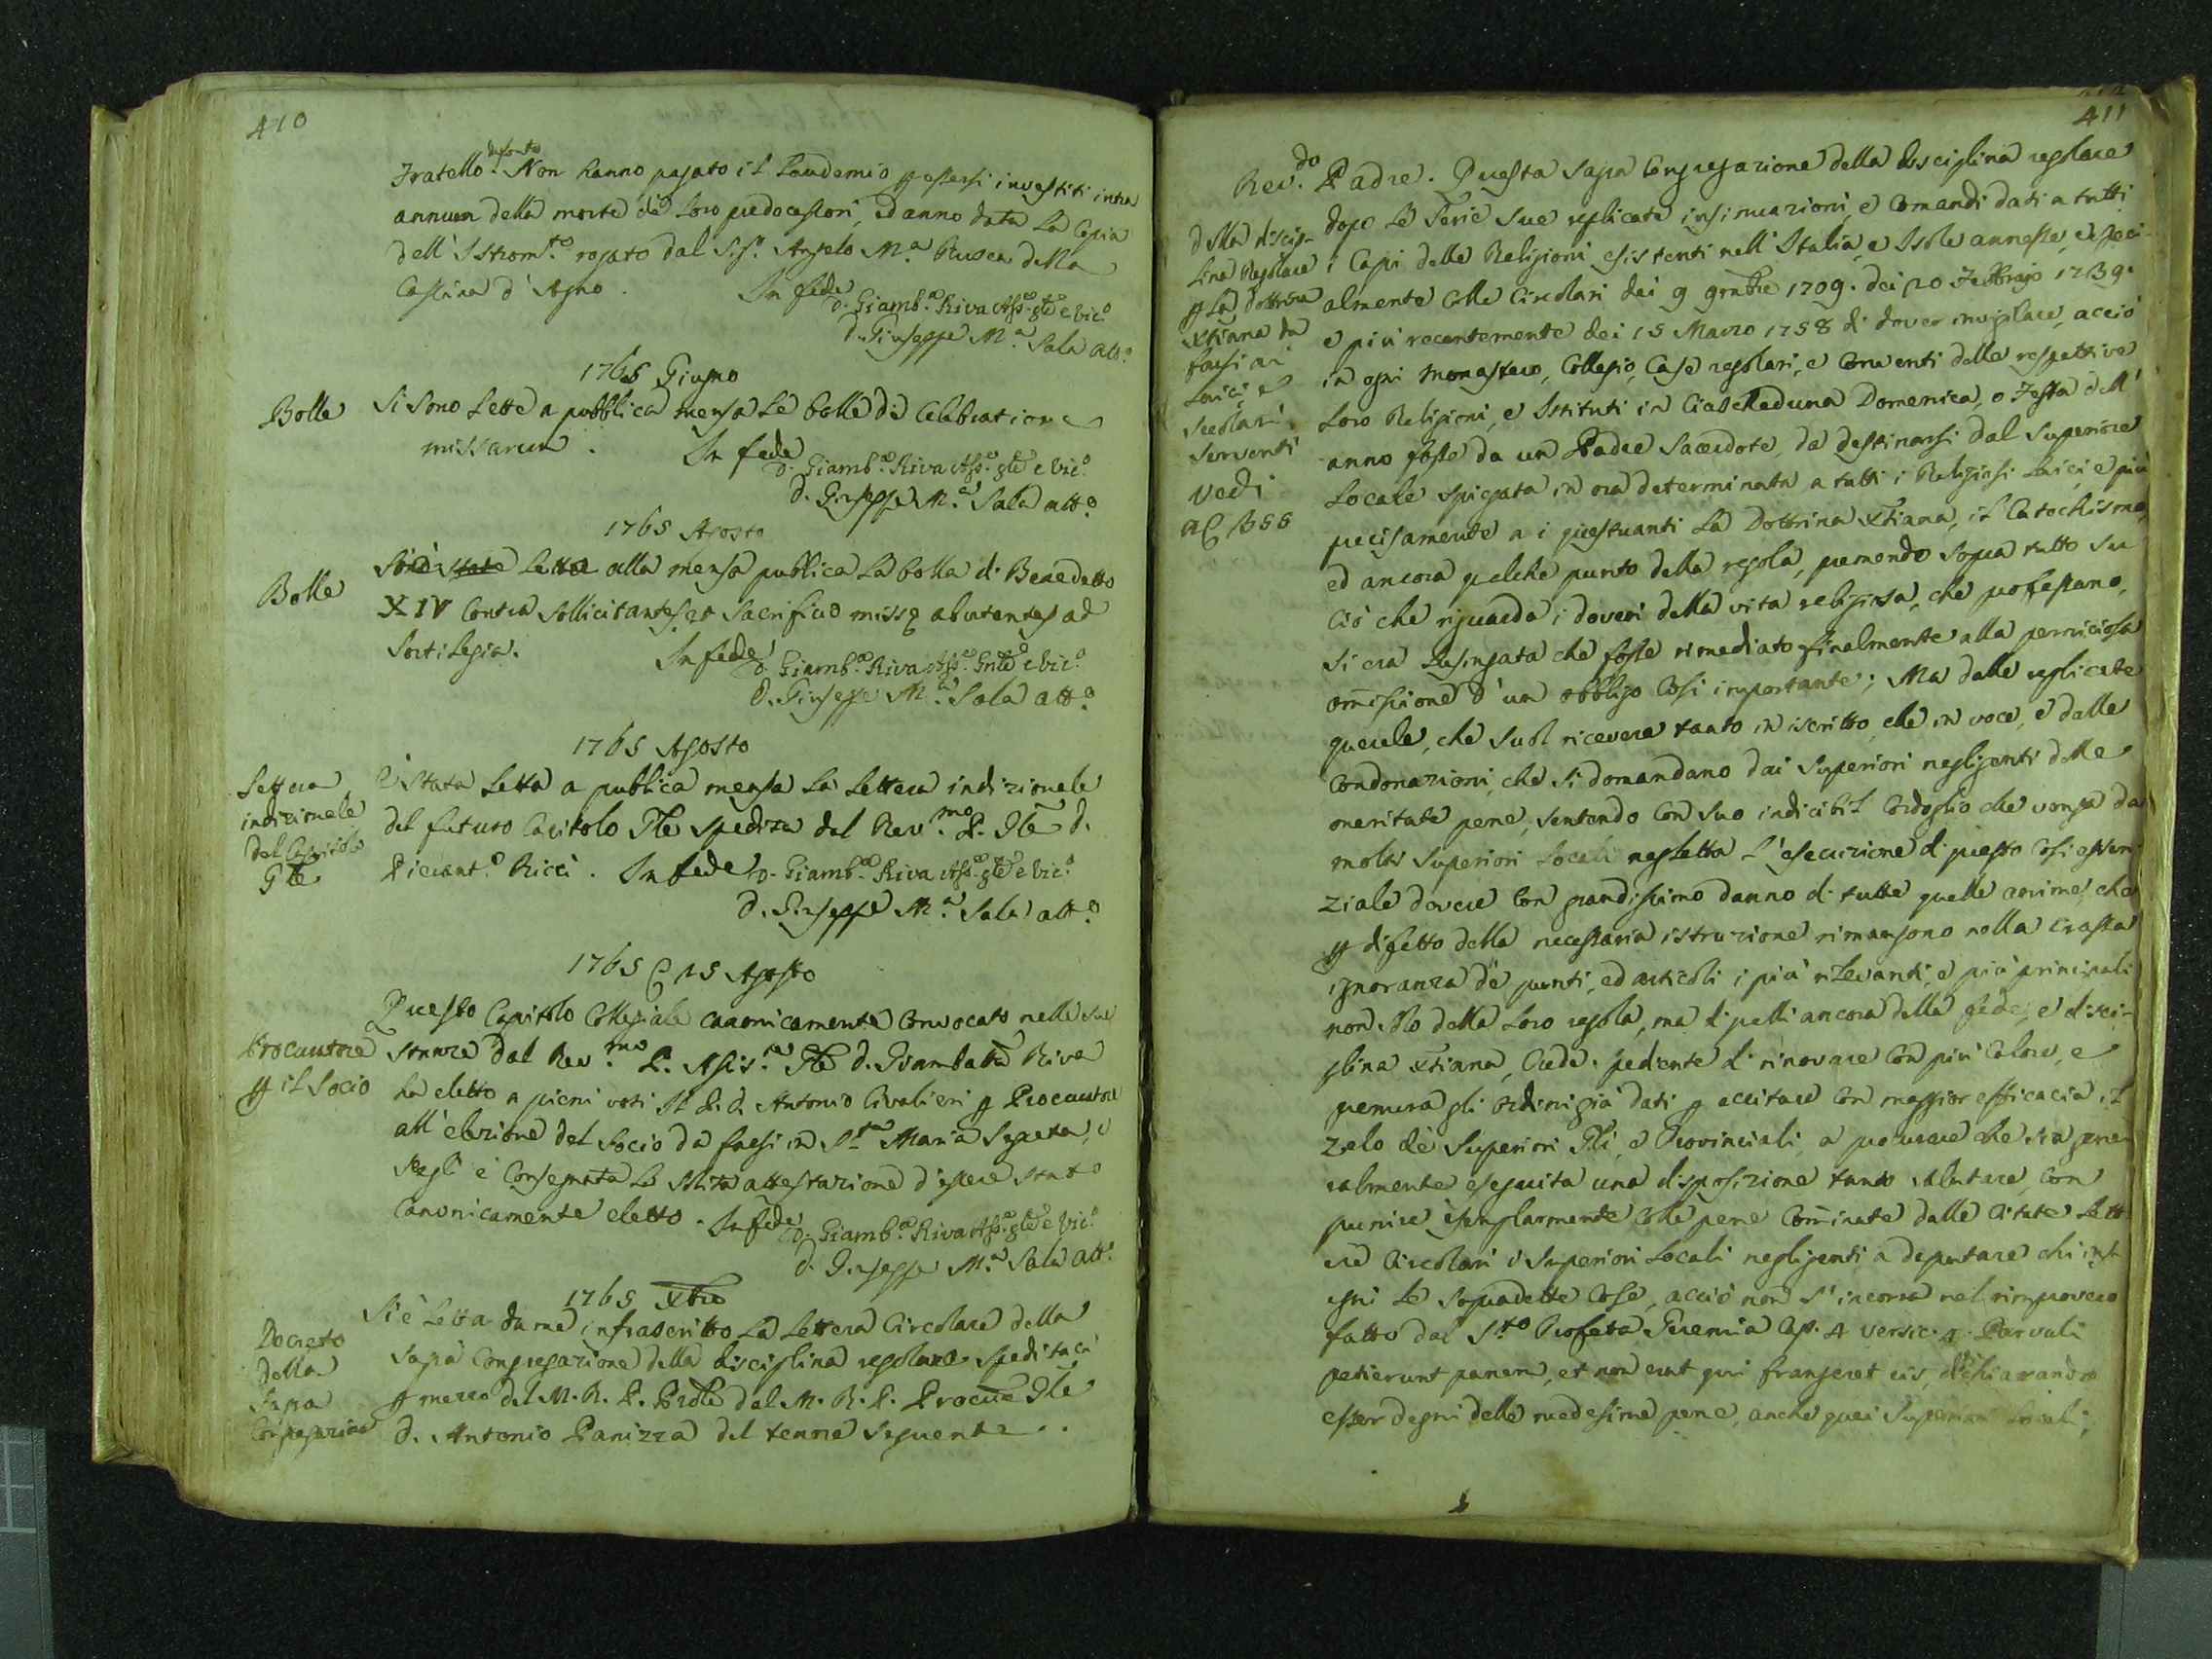 410
defonto
Fratello. Non hanno pagato il Laudemio p essersi investiti intra
annum della morte dè loro predecessori, ed anno data la Copia
dell' Istrom.to rogato dal Sig.r Angelo M.a Rusca della
Cassina d'Agno. In fede
D. Giamb.a Riva Ass.e gle e Vic.o
D. Giuseppe M.a Sala att.o
1765 Giugno
Bolle
Si sono lette a pubblica mensa le bolle de Celebratione
missarum. In fede
D. Giamb.a Riva Ass.e gle e Vic.o
D. Giuseppe M.a Sala att.o
1765 Agosto
Bolle
Si è state letta alla mensa publica la bolla di Benedetto
XIV Contra sollicitantes et Sacrificio missę abutentes ad
Sortilegia. In fede
D. Giamb.a Riva Ass.e Gnle e Vic.o
D. Giuseppe M.a Sala att.o
1765 Agosto
Lettera
indizionale
del Capitolo
Gle
È stata letta a publica mensa la lettera indizionale
del futuro Capitolo Gle spedita dal Rev.mo P. Gle D.
Pierant.o Ricci. In fede D. Giamb.a Riva Ass.e gle e Vic.o
D. Giuseppe M.a Sala att.o
1765 15 Agosto
Procuratore
p il Socio
Questo Capitolo Collegiale canonicamente Convocato nelle sue
stanze dal Rev.mo P. Assis.te Gle D. Giambatta Riva
ha eletto a pieni voti Il P. D. Antonio Civalieri p Procuratore
all'elezione del Socio da farsi in S.ta Maria Segreta, e
segli è Consegnata la solita attestazione d'essere stato
Canonicamente eletto. In fede
D. Giamb.a Riva Ass.e gle e Vic.o
D. Giuseppe M.a Sala att.o
1765 Xbre
Decreto
della
Sagra
Congregazione
Si è letta da me infrascritto la lettera Circolare della
Sagra Congregazione della disciplina regolare speditaci
p mezzo del M. R. P. Prőle dal M. R. P. Procüre Gle
D. Antonio Panizza del tenore seguente..
411
della disci-
lina Regolare
p la dottrina
Xtiana da
farsi ai
laici e
secolari
serventi
vedi
355
Rev.do Padre. Questa Sagra Congregazione della disciplina regolare
dopo le serie sue replicate insinuazioni, e Comandi dati a tutti
i Capi delle Religioni esistenti nell'Italia, e Isole annesse, e speci-
almente Colle Circolari dei 9 9mbre 1709. dei 20 Febbrajo 1739.
e più recentemente dei 15 Marzo 1758 di dover invigilare, acciò
in ogni monastero, Collegio, Case regolari, e Conventi delle respettive
loro Religioni, e Istituti in Ciascheduna Domenica, o Festa dell'
anno fosse da un Padre Sacerdote, da destinarsi dal Superiore
locale spiegata in ora determinata a tutti i Religiosi laici, e più
precisamente a i questuanti la Dottrina Xtiana, il Catechismo,
ed ancora qualche punto della regola, premendo sopra tutto su
Ciò che riguarda i doveri della vita religiosa, che professano,
Si era lusingata che fosse rimediato finalmente alla perniciosa
omissione d'un obbligo Così importante; Ma dalle replicate
querele, che suol ricevere tanto in iscritto, che in voce, e dalle
Condonazioni, che si domandano dai Superiori negligenti delle
meritate pene, sentendo Con suo indicibil Cordoglio che venga da
molti Superiori locali negletta l'esecuzione di questo Così essen
ziale dovere Con grandissimo danno di tutte quelle anime, che
p difetto della necessaria istruzione rimangono nella crassa
ignoranza dè punti, ed articoli i più rilevanti, e più principali
non solo della loro regola, ma di quelli ancora della fede, e disci-
plina Xtiana, Crede. pediente di rinovare Con più Calore, e
premura gli ordini già dati p eccitare Con maggior efficacia il
zelo dè Superiori Gli, e Provinciali a procurare che sia gener
almente eseguita una disposizione tanto salutare, Con
punire esemplarmente Colle pene Cominate dalle Citate lett
ere Circolari i Superiori locali negligenti a deputare chi inse
gni le sopradette Cose, acciò non s'incorra nel rimprovero
fatto dal S.to Profeta Geremia Cap. 4 versic. 4. Parvuli
petierunt panem, et non erat qui frangeret eis, dichiarando
esser degni delle medesime pene, anche quei Superiori locali,